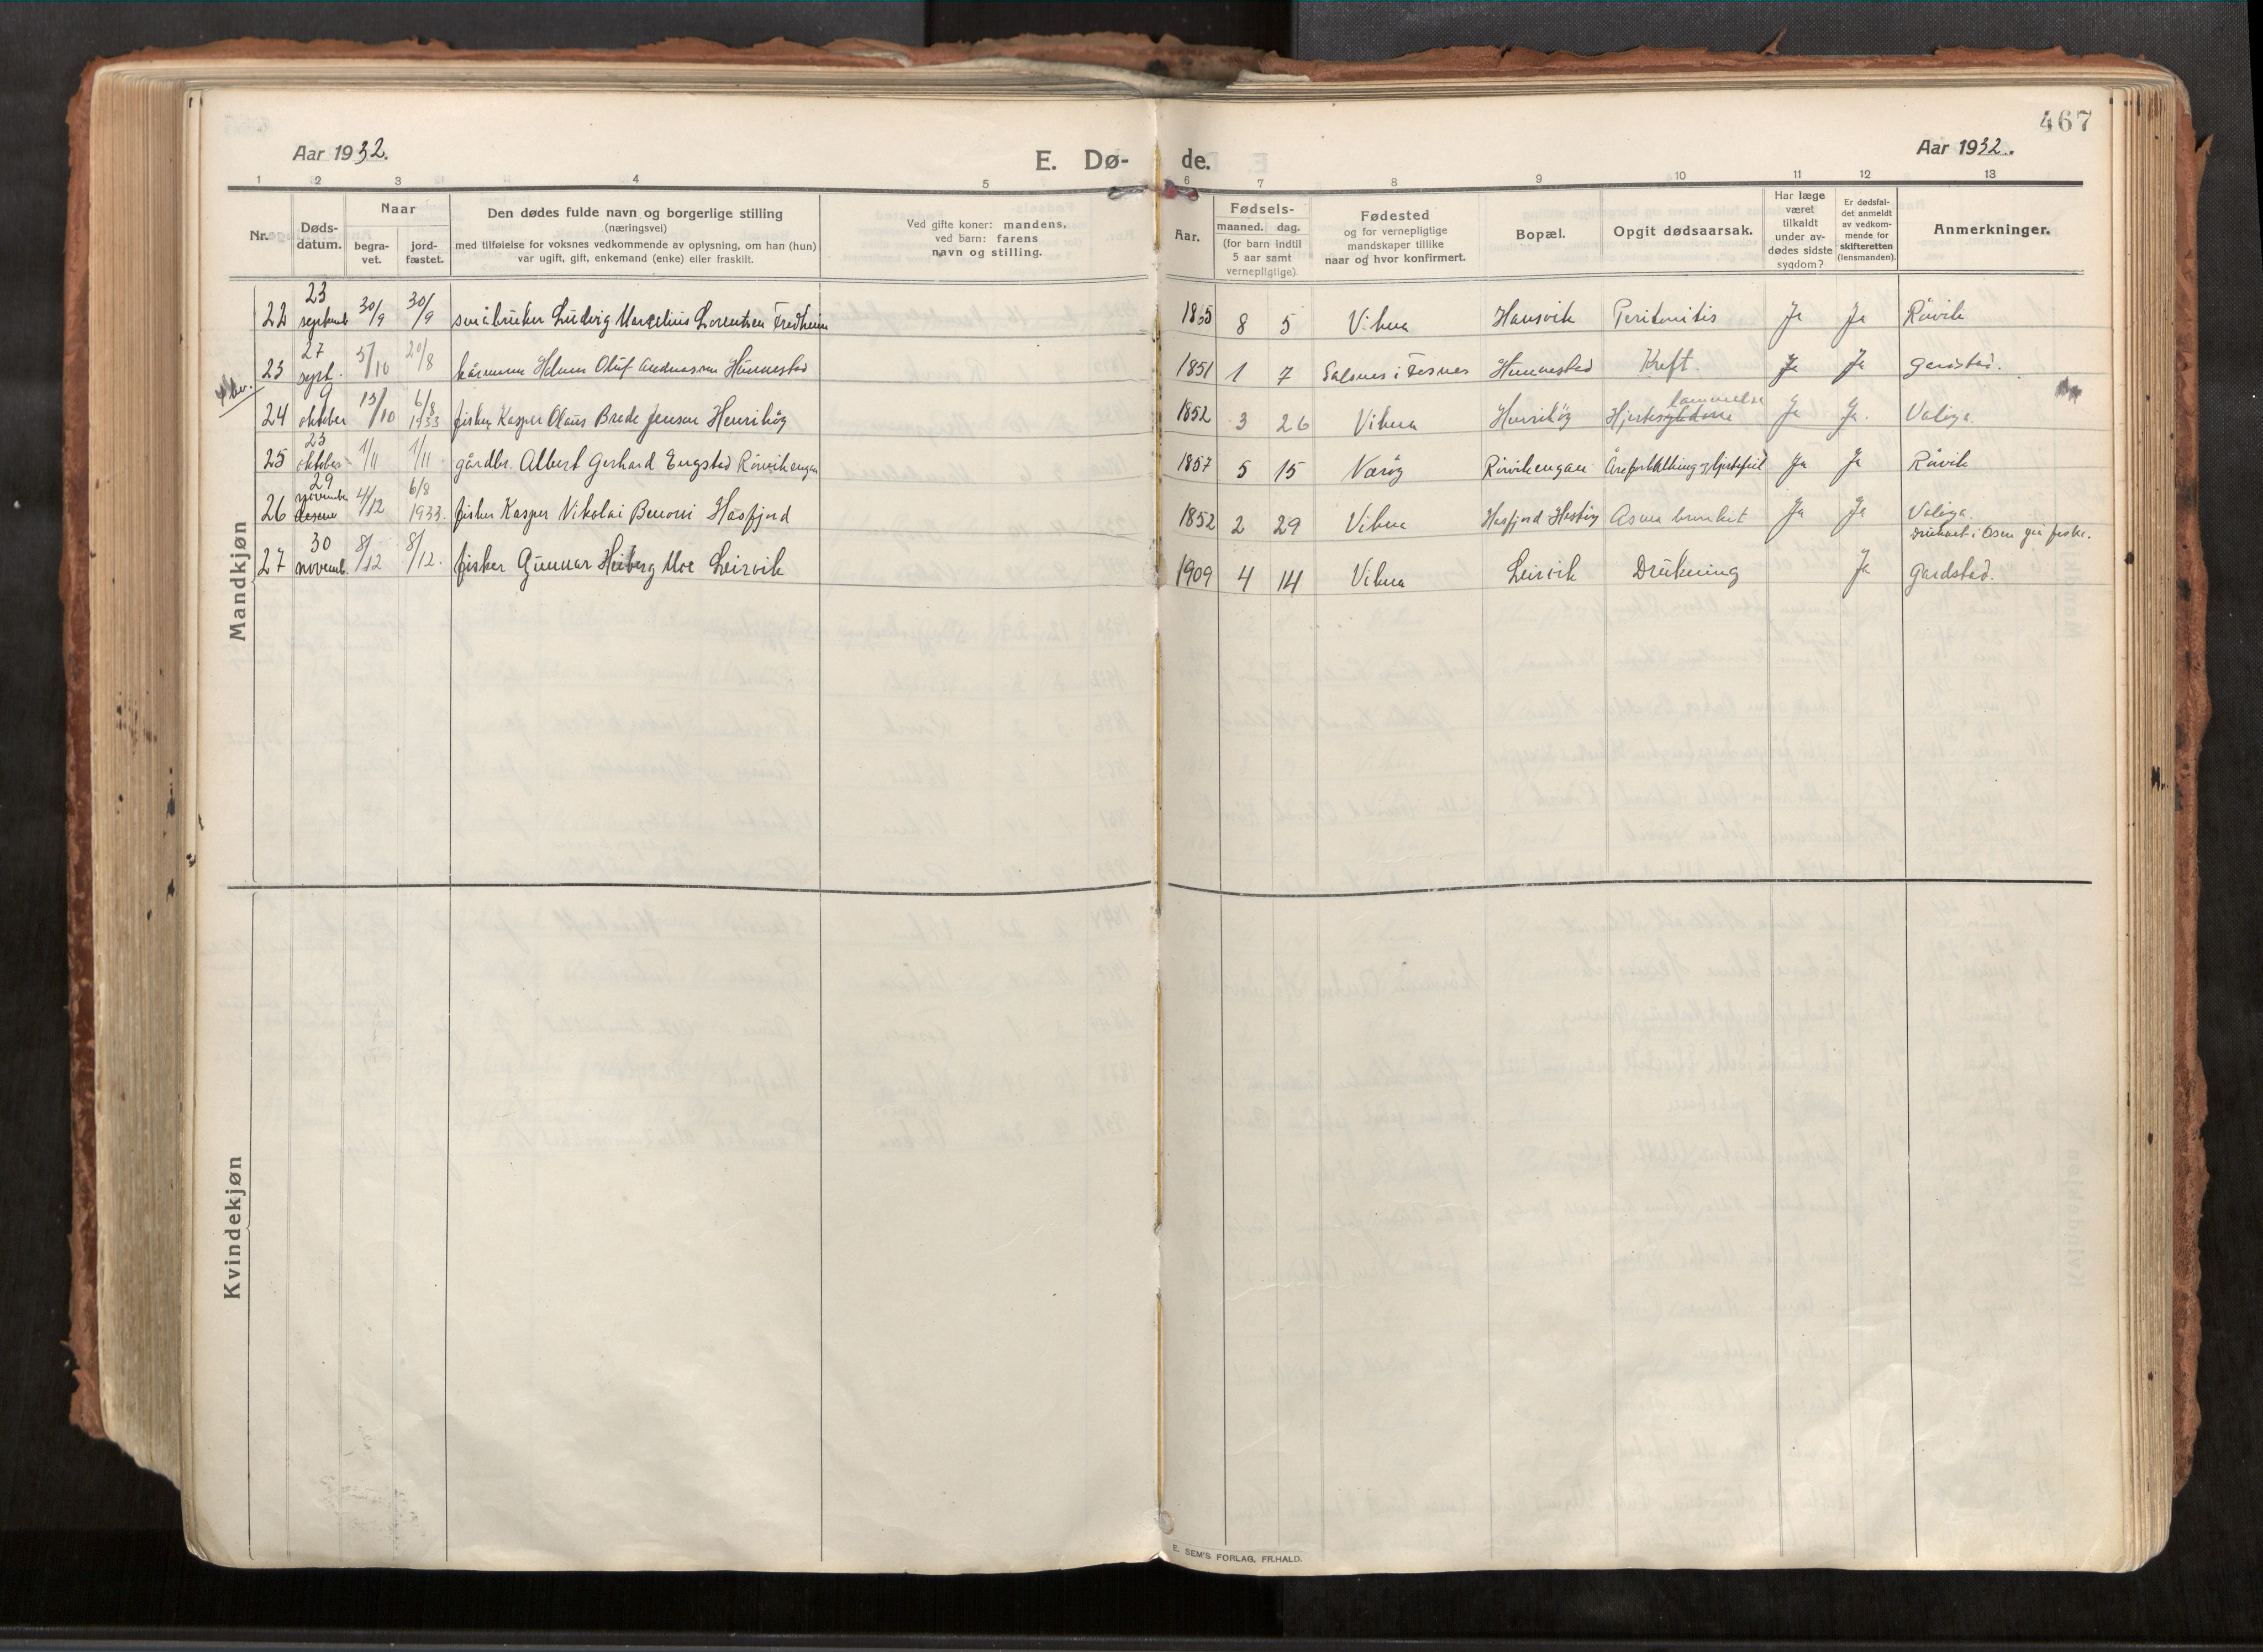 467
Aar 1932.
E. Dø- de.
Aar 1932.
1 2 3 4 5 6 7 8 9 10 11 12 13
Nr.
Døds-
datum.
Naar
begra-
vet.
jord-
fæstet.
Den dødes fulde navn og borgerlige stilling
(næringsvei)
med tilføielse for voksnes vedkommende av oplysning, om han (hun)
var ugift, gift, enkemand (enke) eller fraskilt.
Ved gifte koner: mandens,
ved barn: farens
navn og stilling.
Aar.
Fødsels-
maaned. dag.
(for barn indtil
5 aar samt
vernepligtige).
Fødested
og for vernepligtige
mandskaper tillike
naar og hvor konfirmert.
Bopæl.
Opgit dødsaarsak.
Har læge
været
tilkaldt
under av-
dødes sidste
sygdom?
Er dødsfal-
det anmeldt
av vedkom-
mende for
skifteretten
(lensmanden).
Anmerkninger.
Mandkjøn
22 23 septemb 30/9 30/9 småbruker Ludvig Marselius Lorentsen Fredheim 1855 8 5 Vikna Hansvik Peritonitis Ja Ja Rörvik
23 27 sept. 5/10 20/8 kårmann Oluf Andreassen Hunnestad 1851 1 7 Salsnes i Fosnes Hunnestad Kreft. Ja Ja Gardstad.
24 9 oktober 15/10 6/8 1933 fisker Kasper Olaus Brede Jensen Henriköy 1852 3 26 Vikna Henriköy Hjertesykdom lammelse Ja Ja. Valöya.
25 23 oktober 1/11 1/11 gårdbr. Albert Gerhard Engstad Rörvikengan 1857 5 15 Næröy Rörvikengan Åreforkalkning og hjertefeil Ja Ja Rörvik
26 29 november 4/12 6/8 1933. fisker Kasper Nikolai Benoni Hasfjord 1852 2 29 Vikna Hasfjord Asma bronkit Ja Ja Valöya.
27 30 novemb. 8/12 8/12. fisker Gunnar Heiberg Moe Leirvik 1909 4 14 Vikna Leirvik Drukning Ja druknet i Osen på fiske. Gardstad.
Kvindekjøn
E. SEM'S FORLAG, FR.HALD.